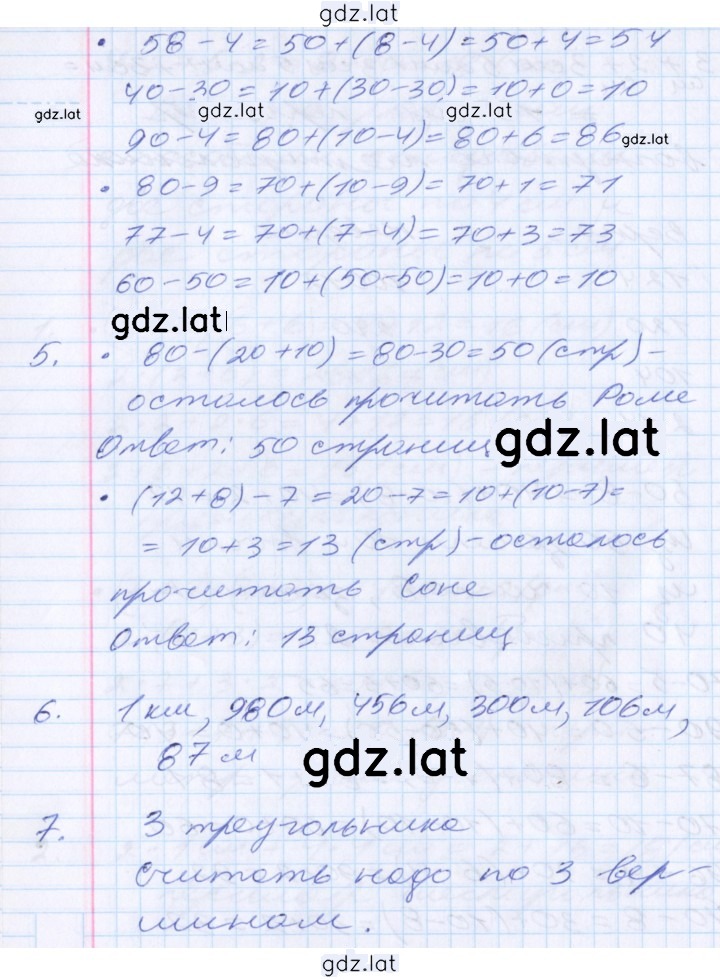 gdz.lat
• 58-4=50+(8-4)=50+4=54
40-30=10+(30-30)=10+0=10
gdz.lat gdz.lat gdz.lat
90-4=80+(10-4)=80+6=86 gdz.lat
• 80-9=70+(10-9)=70+1=71
77-4=70+(7-4)=70+3=73
60-50=10+(50-50)=10+0=10
gdz.lat
5. • 80-(20+10)=80-30=50(стр)-
осталось прочитать Роме
Ответ: 50 страниц
gdz.lat
• (12+8)-7=20-7=10+(10-7)=
=10+3=13 (стр)-осталось
прочитать Соне
Ответ: 13 страниц
6. 1км, 980м, 456м, 300м, 106м,
87м
gdz.lat
7. 3 треугольника
Считать надо по 3 вер-
шинам.
gdz.lat